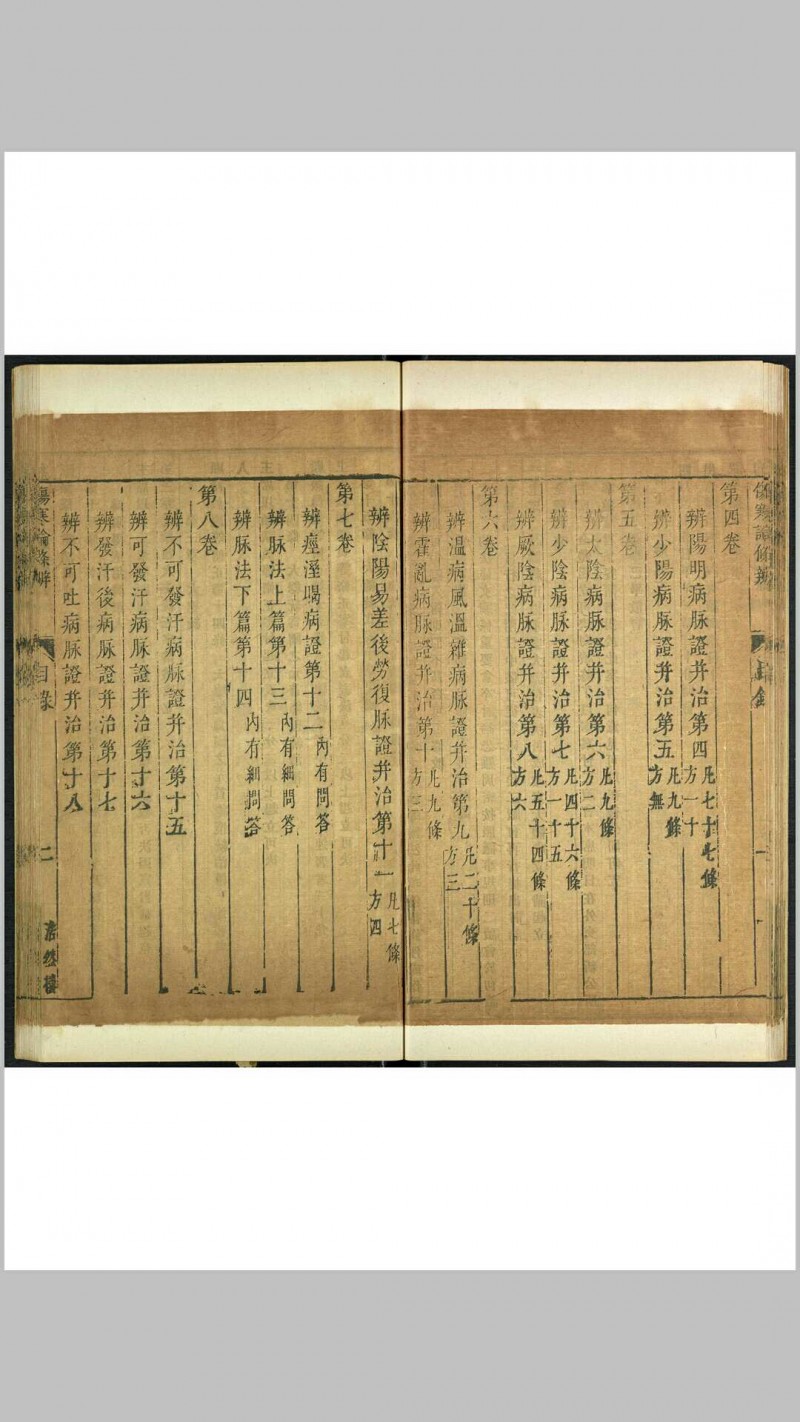 傷寒論條辨
目錄
一
第四卷
辨陽明病脉證并治第四 凡七十七條 方一十
辨少陽病脉證并治第五 凡九條 方無
第五卷
辨太陰病脉證并治第六 凡九條 方二
辨少陰病脉證并治第七 凡四十六條 方一十五
辨厥陰病脉證并治第八 凡五十四條 方六
第六卷
辨溫病風溫雜病脉證并治第九 凡二十條 方三
辨霍亂病脉證并治第十 凡九條 方三
辨陰陽易差後勞復脉證并治第十一 凡七條 方四
第七卷
辨痙溼暍病證第十二 內有問答
辨脉法上篇第十三 內有細問答
辨脉法下篇第十四 內有細問答
第八卷
辨不可發汗病脉證并治第十五
辨可發汗病脉證并治第十六
辨發汗後病脉證并治第十七
辨不可吐病脉證并治第十八
傷寒論條辨
目錄
二
浩然樓